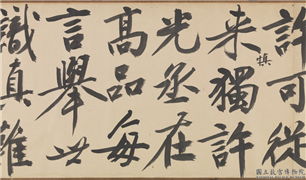 許可從
来獨許
光丞在
高品每
言舉世
識真難
撫
國立故宮博物院